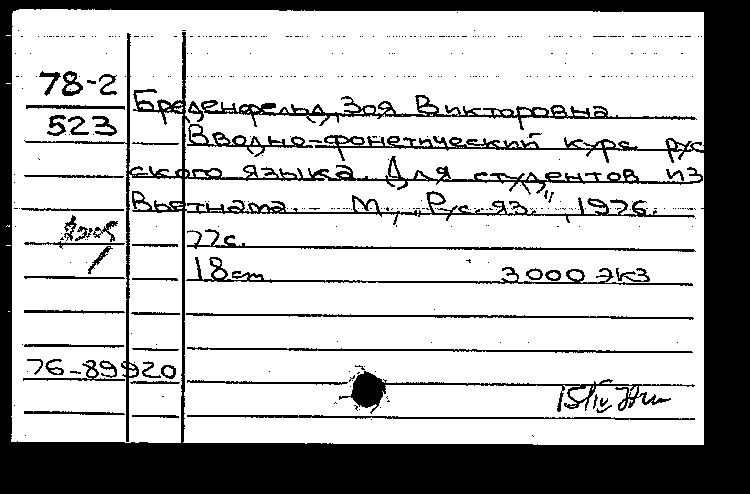 78-2
Бреденфельд, Зоя Викторовна.
523
Вводно-фонетический курс рус
ского языка. Для студентов из
Вьетнама. - М., „Рус. яз.", 1976.
77с.
18cm 3000 экз
76-89920
15/IV